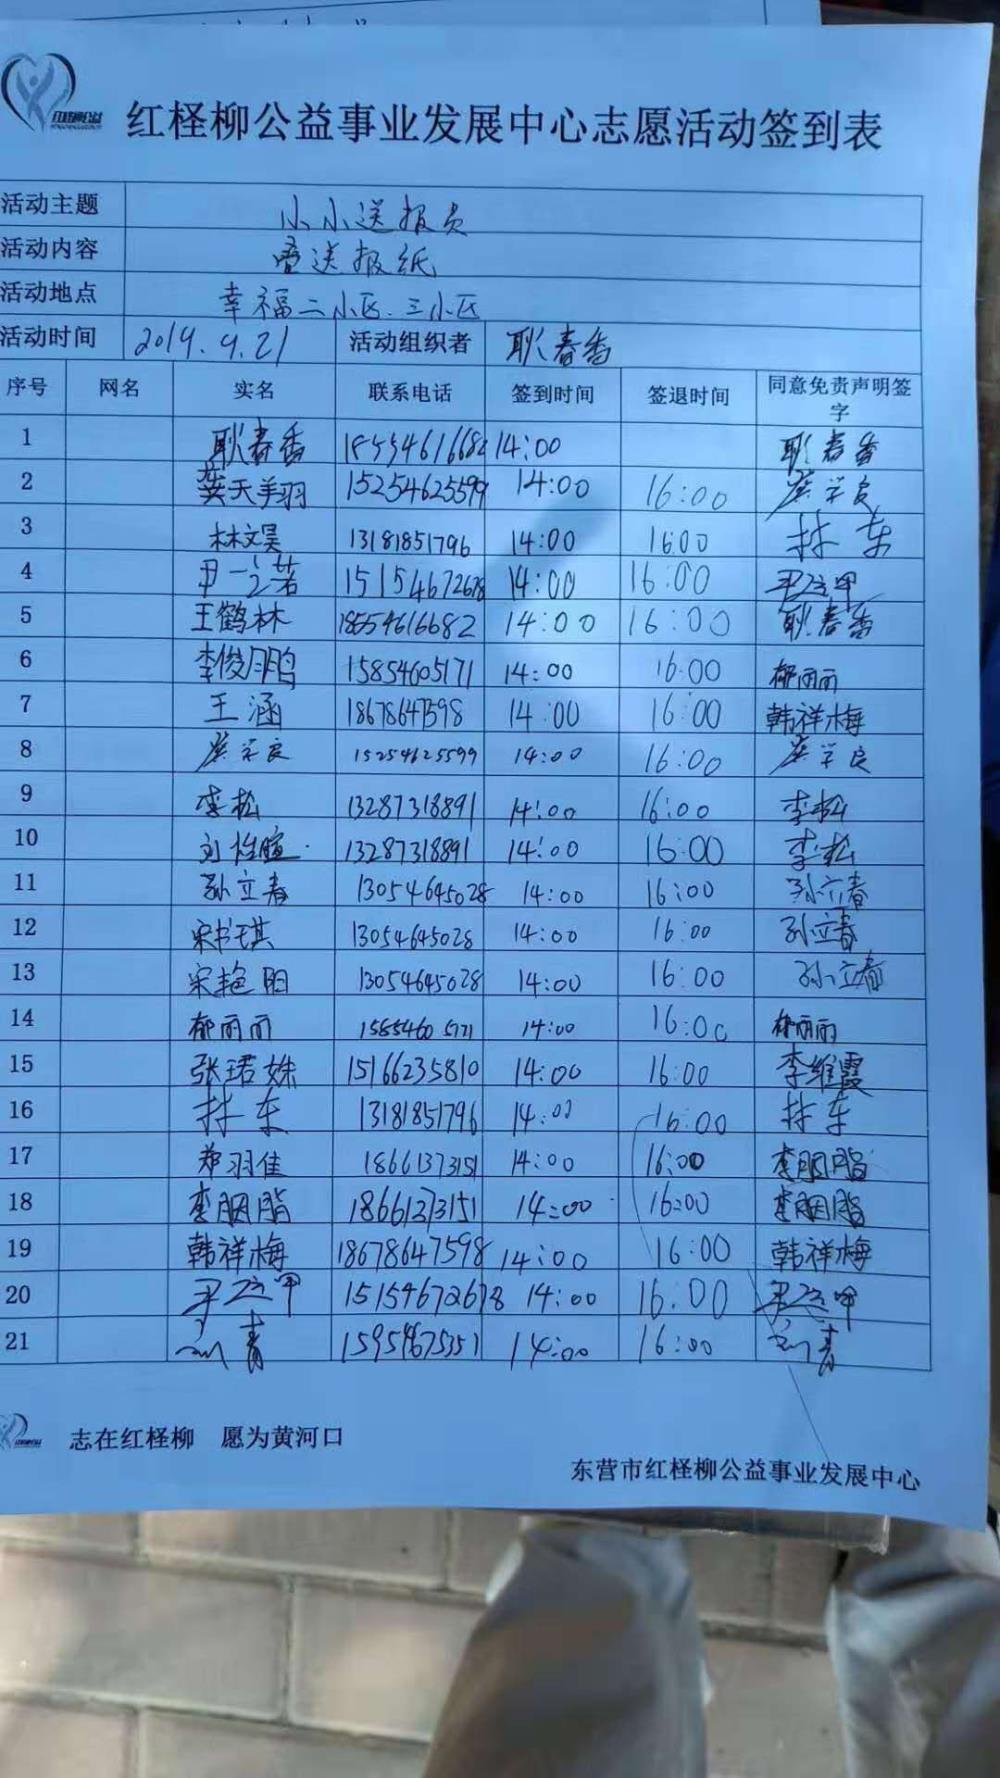 红柽柳公益事业发展中心志愿活动签到表
活动主题 小小送报员
活动内容 送报纸
活动地点 幸福二小区.三小区
活动时间 2019.9.21 活动组织者 耿春香
序号 网名 实名 联系电话 签到时间 签退时间 同意免责声明签字
1 耿春香 14:00 耿春香
2 天羽 15254625599 14:00 16:00
3 林文昊 13181851796 14:00 16:00 林东
4 尹一诺 15154672678 14:00 16:00
5 王鹤林 18554616682 14:00 16:00 耿春香
6 李俊鹏 15854605171 14:00 16:00 郁丽丽
7 王涵 18678647598 14:00 16:00 韩祥梅
8 15254625599 14:00 16:00
9 李松 13287318891 14:00 16:00 李松
10 刘 13287318891 14:00 16:00 李松
11 孙立春 13054645028 14:00 16:00 孙立春
12 宋书琪 13054645028 14:00 16:00 孙立春
13 宋艳阳 13054645028 14:00 16:00 孙立春
14 郁丽丽 14:00 16:00 郁丽丽
15 张珺姝 15166235810 14:00 16:00 李维霞
16 林东 13181851796 14:00 16:00 林东
17 郑羽佳 18661373151 14:00 16:00 李胭脂
18 李胭脂 18661373151 14:00 16:00 李胭脂
19 韩祥梅 18678647598 14:00 16:00 韩祥梅
20 15154672678 14:00 16:00
21 刘青 14:00 16:00 刘青
志在红柽柳 愿为黄河口
东营市红柽柳公益事业发展中心